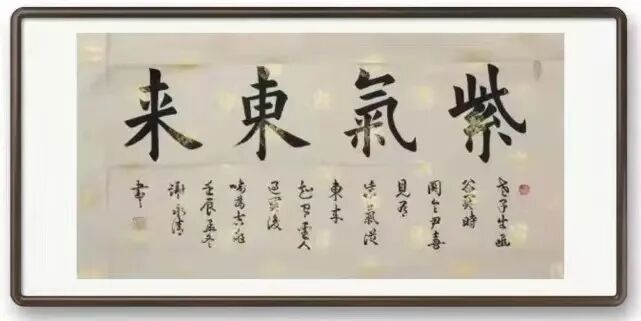 紫氣東来
老子出函
谷關時
關令尹喜
見有
紫氣從
東来
知有聖人
過關後
喻為吉
壬辰孟冬
謝永清
書